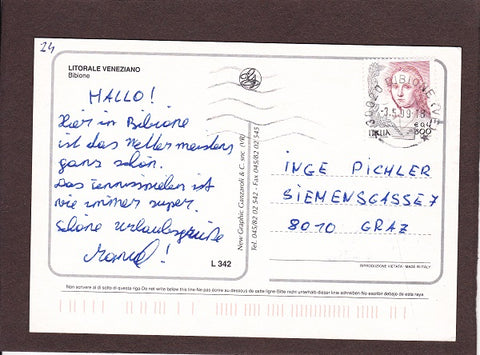 24
LITORALE VENEZIANO
Bibione
HALLO!
Hier in Bibione
ist das Wetter meistens
ganz schön.
Das Tennisspielen ist
wie immer super.
Schöne Urlaubsgrüße
!
L 342
New Graphic Ganzaroli & C. snc (VR)
Tel. 045/82 02 542 - Fax 045/82 02 545
BIBIONE (VE)
ITALIA
800
INGE PICHLER
SIEMENSGASSE 7
8010 GRAZ
RIPRODUZIONE VIETATA - MADE IN ITALY
Non scrivere al di sotto di questa riga Do not write below this line Ne pas écrire au-dessous de cette ligne Bitte nicht unterhalb dieser linie schreiben No escribir debajo de esta raya